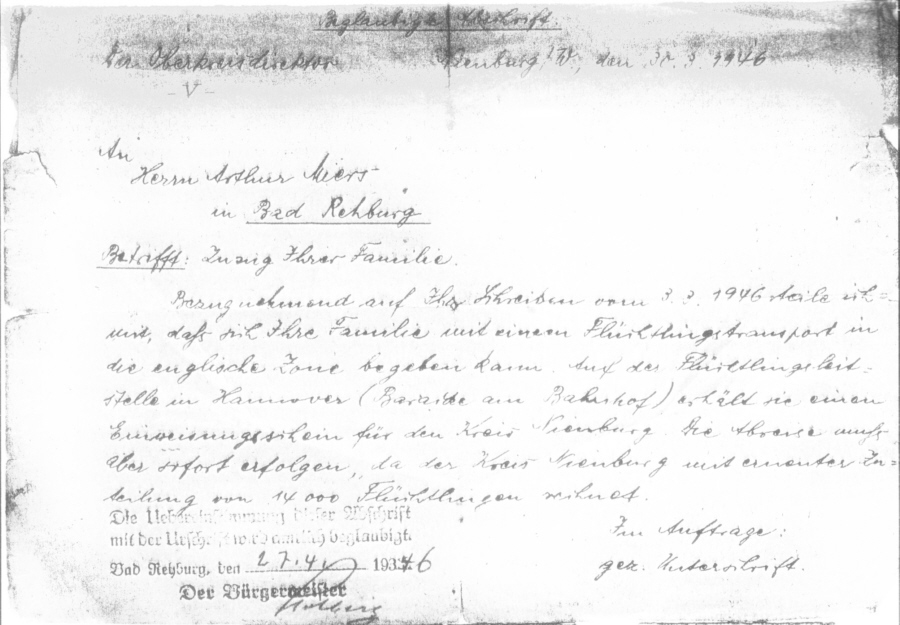 Beglaubigte Abschrift.
Der Oberkreisdirektor Nienburg/W., den 30. 3. 1946
An
Herrn Arthur Miers
in Bad Rehburg
Betrifft: Zuzug Ihrer Familie.
Bezugnehmend auf Ihr Schreiben vom 3. 3. 1946 teile ich
mit, daß sich Ihre Familie mit einem Flüchtlingstransport in
die englische Zone begeben kann. Auf der Flüchtlingsleit=
stelle in Hannover (Baracke am Bahnhof) erhält sie einen
Einweisungsschein für den Kreis Nienburg. Die Abreise muß
aber sofort erfolgen, da der Kreis Nienburg mit erneuter Zu=
teilung von 14 000 Flüchtlingen rechnet.
Im Auftrage:
gez. Unterschrift.
Die Uebereinstimmung dieser Abschrift
mit der Urschrift wird amtlich beglaubigt.
Bad Rehburg, den 27.4. 1946
Der Bürgermeister